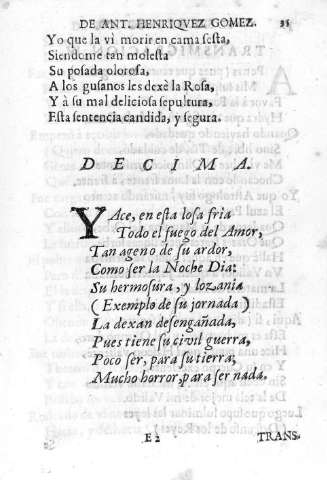 DE ANT. HENRIQVEZ GOMEZ. 35
Yo que la vi morir en cama ſeſta,
Siendome tan moleſta
Su poſada oloroſa,
A los guſanos les dexè la Roſa,
Y à ſu mal delicioſa ſepultura,
Eſta ſentencia candida, y ſegura.
DECIMA.
YAce, en eſta loſa fria
Todo el fuego del Amor,
Tan ageno de ſu ardor,
Como ſer la Noche Dia:
Su hermoſura, y lozania
(Exemplo de ſu jornada)
La dexan deſengañada,
Pues tiene ſu civil guerra,
Poco ſer, para ſu tierra,
Mucho horror, para ſer nada.
E 2 TRANS.